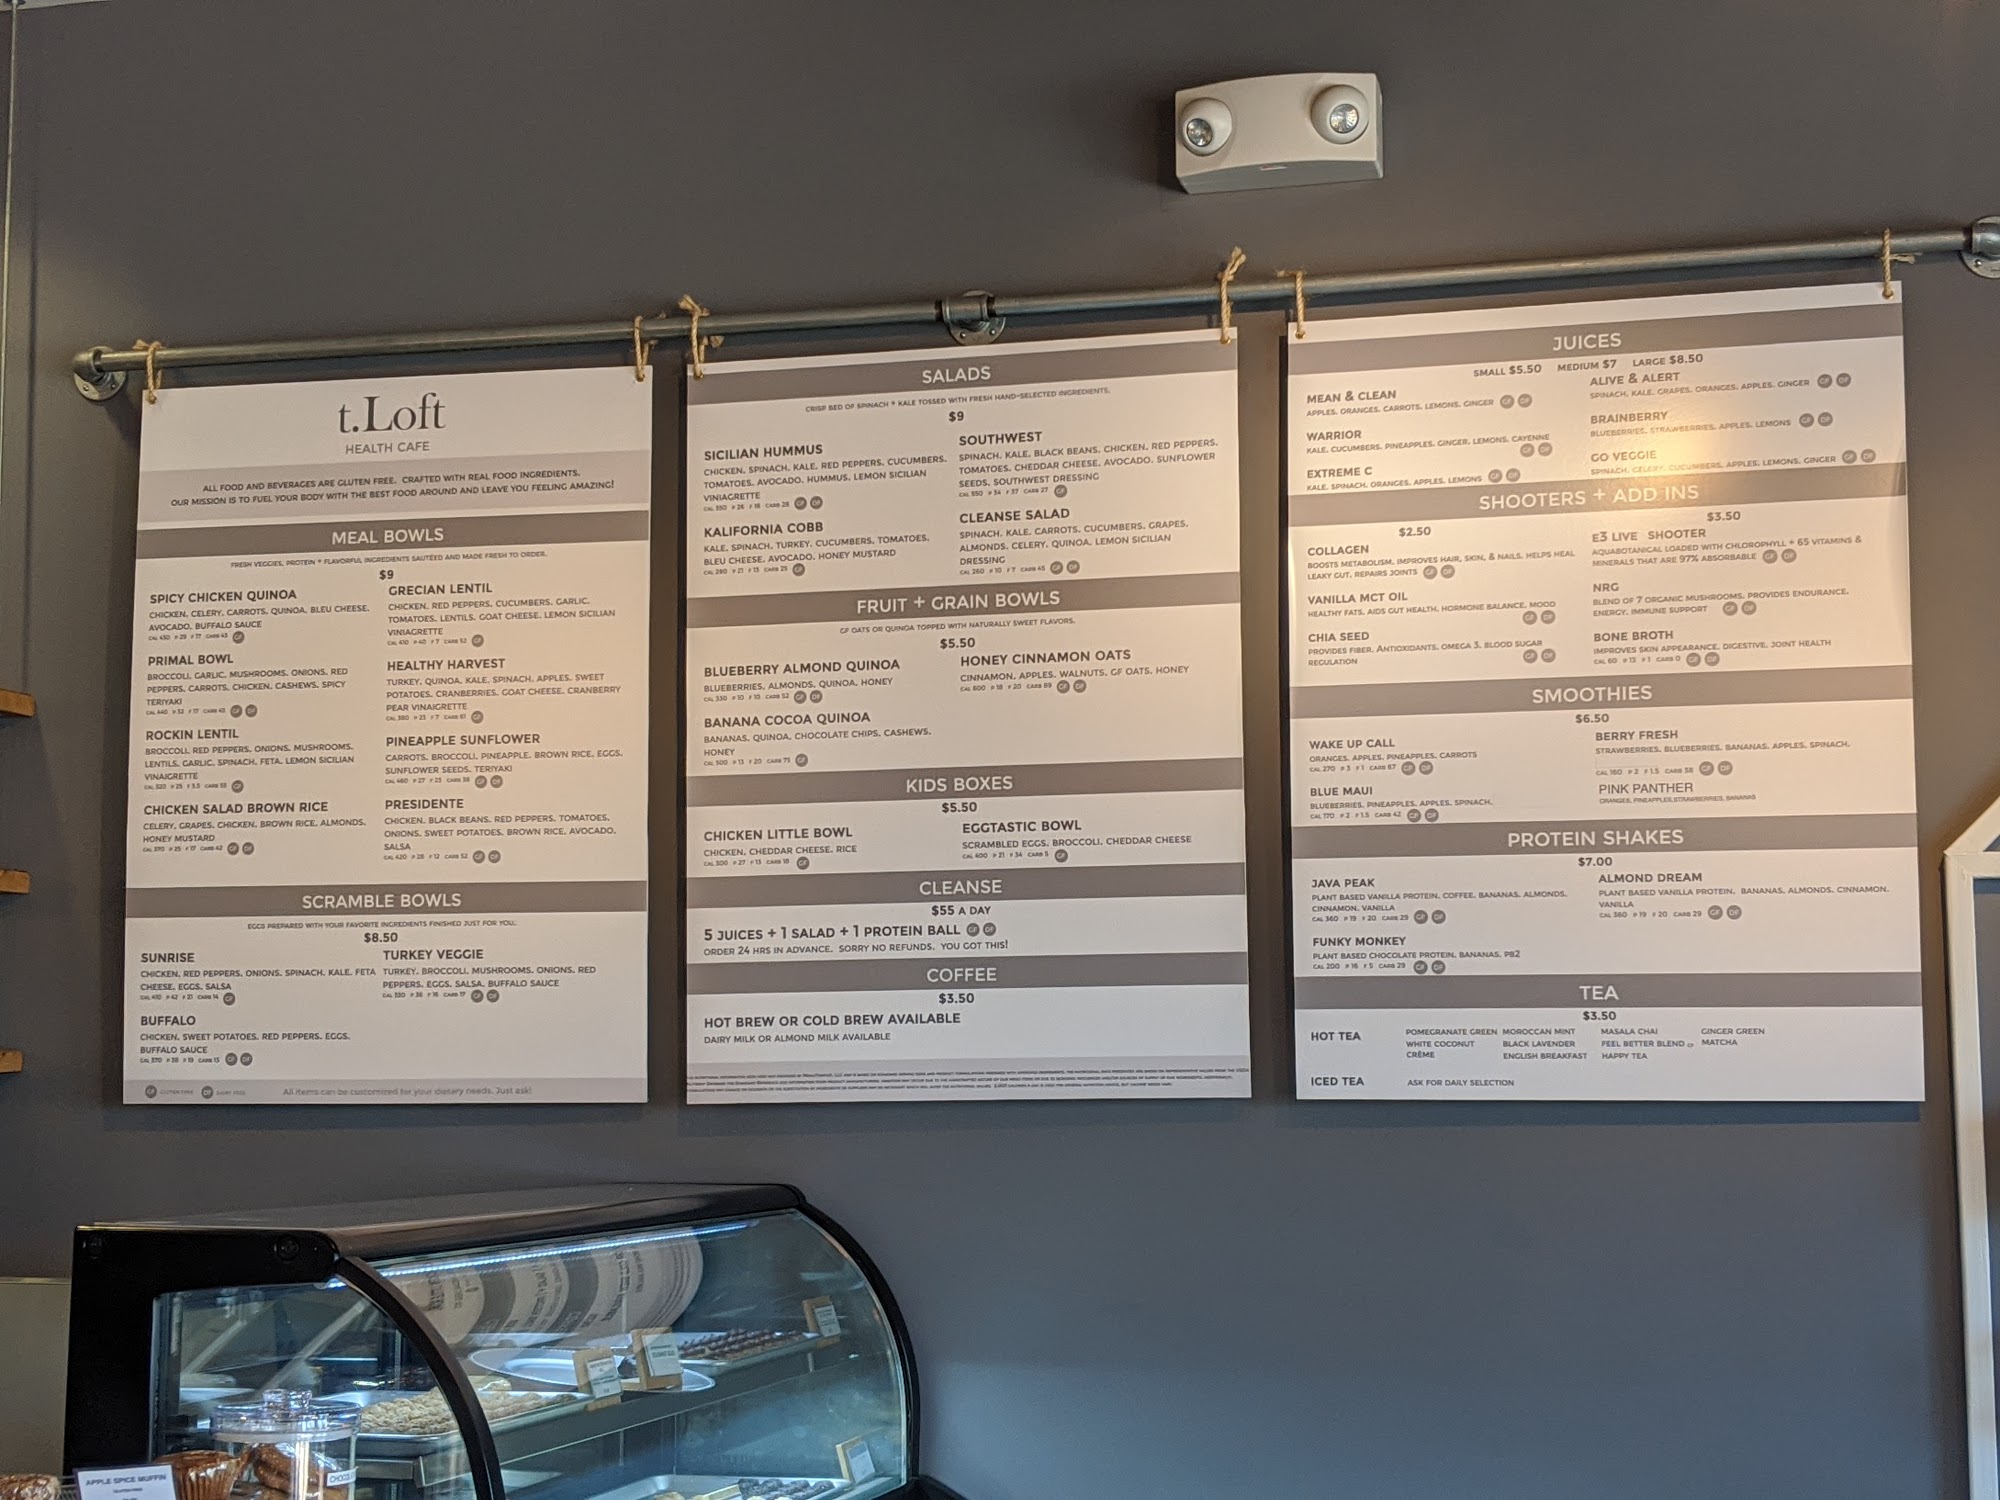 t.Loft
HEALTH CAFE
ALL FOOD AND BEVERAGES ARE GLUTEN FREE. CRAFTED WITH REAL FOOD INGREDIENTS.
OUR MISSION IS TO FUEL YOUR BODY WITH THE BEST FOOD AROUND AND LEAVE YOU FEELING AMAZING!
MEAL BOWLS
FRESH VEGGIES, PROTEIN + FLAVORFUL INGREDIENTS SAUTÉED AND MADE FRESH TO ORDER.
$9
SPICY CHICKEN QUINOA
CHICKEN, CELERY, CARROTS, QUINOA, BLEU CHEESE,
AVOCADO, BUFFALO SAUCE
CAL 430 P 29 F 17 CARB 43 GF
PRIMAL BOWL
BROCCOLI, GARLIC, MUSHROOMS, ONIONS, RED
PEPPERS, CARROTS, CHICKEN, CASHEWS, SPICY
TERIYAKI
CAL 440 P 32 F 17 CARB 42 GF DF
ROCKIN LENTIL
BROCCOLI, RED PEPPERS, ONIONS, MUSHROOMS,
LENTILS, GARLIC, SPINACH, FETA, LEMON SICILIAN
VINAIGRETTE
CAL 520 P 25 F 3.5 CARB 55 GF
CHICKEN SALAD BROWN RICE
CELERY, GRAPES, CHICKEN, BROWN RICE, ALMONDS,
HONEY MUSTARD
CAL 370 P 25 F 17 CARB 42 GF DF
GRECIAN LENTIL
CHICKEN, RED PEPPERS, CUCUMBERS, GARLIC,
TOMATOES, LENTILS, GOAT CHEESE, LEMON SICILIAN
VINIAGRETTE
CAL 410 P 40 F 7 CARB 52 GF
HEALTHY HARVEST
TURKEY, QUINOA, KALE, SPINACH, APPLES, SWEET
POTATOES, CRANBERRIES, GOAT CHEESE, CRANBERRY
PEAR VINAIGRETTE
CAL 380 P 23 F 7 CARB 61 GF
PINEAPPLE SUNFLOWER
CARROTS, BROCCOLI, PINEAPPLE, BROWN RICE, EGGS,
SUNFLOWER SEEDS, TERIYAKI
CAL 460 P 27 F 23 CARB 38 GF DF
PRESIDENTE
CHICKEN, BLACK BEANS, RED PEPPERS, TOMATOES,
ONIONS, SWEET POTATOES, BROWN RICE, AVOCADO,
SALSA
CAL 420 P 28 F 12 CARB 52 GF DF
SCRAMBLE BOWLS
EGGS PREPARED WITH YOUR FAVORITE INGREDIENTS FINISHED JUST FOR YOU.
$8.50
SUNRISE
CHICKEN, RED PEPPERS, ONIONS, SPINACH, KALE, FETA
CHEESE, EGGS, SALSA
CAL 410 P 42 F 21 CARB 14 GF
BUFFALO
CHICKEN, SWEET POTATOES, RED PEPPERS, EGGS,
BUFFALO SAUCE
CAL 370 P 38 F 19 CARB 13 GF DF
TURKEY VEGGIE
TURKEY, BROCCOLI, MUSHROOMS, ONIONS, RED
PEPPERS, EGGS, SALSA, BUFFALO SAUCE
CAL 330 P 36 F 16 CARB 17 GF DF
GF GLUTEN FREE DF DAIRY FREE All items can be customized for your dietary needs. Just ask!
SALADS
CRISP BED OF SPINACH + KALE TOSSED WITH FRESH HAND-SELECTED INGREDIENTS.
$9
SICILIAN HUMMUS
CHICKEN, SPINACH, KALE, RED PEPPERS, CUCUMBERS,
TOMATOES, AVOCADO, HUMMUS, LEMON SICILIAN
VINIAGRETTE
CAL 350 P 26 F 18 CARB 28 GF DF
KALIFORNIA COBB
KALE, SPINACH, TURKEY, CUCUMBERS, TOMATOES,
BLEU CHEESE, AVOCADO, HONEY MUSTARD
CAL 280 P 21 F 13 CARB 25 GF
SOUTHWEST
SPINACH, KALE, BLACK BEANS, CHICKEN, RED PEPPERS,
TOMATOES, CHEDDAR CHEESE, AVOCADO, SUNFLOWER
SEEDS, SOUTHWEST DRESSING
CAL 550 P 34 F 37 CARB 27 GF
CLEANSE SALAD
SPINACH, KALE, CARROTS, CUCUMBERS, GRAPES,
ALMONDS, CELERY, QUINOA, LEMON SICILIAN
DRESSING
CAL 260 P 10 F 7 CARB 45 GF DF
FRUIT + GRAIN BOWLS
GF OATS OR QUINOA TOPPED WITH NATURALLY SWEET FLAVORS.
$5.50
BLUEBERRY ALMOND QUINOA
BLUEBERRIES, ALMONDS, QUINOA, HONEY
CAL 330 P 10 F 10 CARB 52 GF DF
BANANA COCOA QUINOA
BANANAS, QUINOA, CHOCOLATE CHIPS, CASHEWS,
HONEY
CAL 500 P 13 F 20 CARB 75 GF
HONEY CINNAMON OATS
CINNAMON, APPLES, WALNUTS, GF OATS, HONEY
CAL 600 P 18 F 20 CARB 89 GF DF
KIDS BOXES
$5.50
CHICKEN LITTLE BOWL
CHICKEN, CHEDDAR CHEESE, RICE
CAL 300 P 27 F 13 CARB 18 GF
EGGTASTIC BOWL
SCRAMBLED EGGS, BROCCOLI, CHEDDAR CHEESE
CAL 400 P 21 F 34 CARB 5 GF
CLEANSE
$55 A DAY
5 JUICES + 1 SALAD + 1 PROTEIN BALL GF DF
ORDER 24 HRS IN ADVANCE. SORRY NO REFUNDS. YOU GOT THIS!
COFFEE
$3.50
HOT BREW OR COLD BREW AVAILABLE
DAIRY MILK OR ALMOND MILK AVAILABLE
JUICES
SMALL $5.50 MEDIUM $7 LARGE $8.50
MEAN & CLEAN
APPLES, ORANGES, CARROTS, LEMONS, GINGER GF DF
WARRIOR
KALE, CUCUMBERS, PINEAPPLES, GINGER, LEMONS, CAYENNE
GF DF
EXTREME C
KALE, SPINACH, ORANGES, APPLES, LEMONS GF DF
ALIVE & ALERT
SPINACH, KALE, GRAPES, ORANGES, APPLES, GINGER GF DF
BRAINBERRY
BLUEBERRIES, STRAWBERRIES, APPLES, LEMONS GF DF
GO VEGGIE
SPINACH, CELERY, CUCUMBERS, APPLES, LEMONS, GINGER GF DF
SHOOTERS + ADD INS
$2.50
COLLAGEN
BOOSTS METABOLISM, IMPROVES HAIR, SKIN, & NAILS, HELPS HEAL
LEAKY GUT, REPAIRS JOINTS GF DF
VANILLA MCT OIL
HEALTHY FATS, AIDS GUT HEALTH, HORMONE BALANCE, MOOD
GF DF
CHIA SEED
PROVIDES FIBER, ANTIOXIDANTS, OMEGA 3, BLOOD SUGAR
REGULATION GF DF
$3.50
E3 LIVE SHOOTER
AQUABOTANICAL LOADED WITH CHLOROPHYLL + 65 VITAMINS &
MINERALS THAT ARE 97% ABSORBABLE GF DF
NRG
BLEND OF 7 ORGANIC MUSHROOMS, PROVIDES ENDURANCE,
ENERGY, IMMUNE SUPPORT GF DF
BONE BROTH
IMPROVES SKIN APPEARANCE, DIGESTIVE, JOINT HEALTH
CAL 60 P 13 F 1 CARB 0 GF DF
SMOOTHIES
$6.50
WAKE UP CALL
ORANGES, APPLES, PINEAPPLES, CARROTS
CAL 270 P 3 F 1 CARB 67 GF DF
BLUE MAUI
BLUEBERRIES, PINEAPPLES, APPLES, SPINACH,
CAL 170 P 2 F 1.5 CARB 42 GF DF
BERRY FRESH
STRAWBERRIES, BLUEBERRIES, BANANAS, APPLES, SPINACH,
CAL 160 P 2 F 1.5 CARB 38 GF DF
PINK PANTHER
ORANGES, PINEAPPLES,STRAWBERRIES, BANANAS
PROTEIN SHAKES
$7.00
JAVA PEAK
PLANT BASED VANILLA PROTEIN, COFFEE, BANANAS, ALMONDS,
CINNAMON, VANILLA
CAL 360 P 19 F 20 CARB 29 GF DF
FUNKY MONKEY
PLANT BASED CHOCOLATE PROTEIN, BANANAS, PB2
CAL 200 P 16 F 5 CARB 29 GF DF
ALMOND DREAM
PLANT BASED VANILLA PROTEIN, BANANAS, ALMONDS, CINNAMON,
VANILLA
CAL 360 P 19 F 20 CARB 29 GF DF
TEA
$3.50
HOT TEA
POMEGRANATE GREEN MOROCCAN MINT MASALA CHAI GINGER GREEN
WHITE COCONUT BLACK LAVENDER FEEL BETTER BLEND MATCHA
CRÈME ENGLISH BREAKFAST HAPPY TEA
ICED TEA ASK FOR DAILY SELECTION
APPLE SPICE MUFFIN